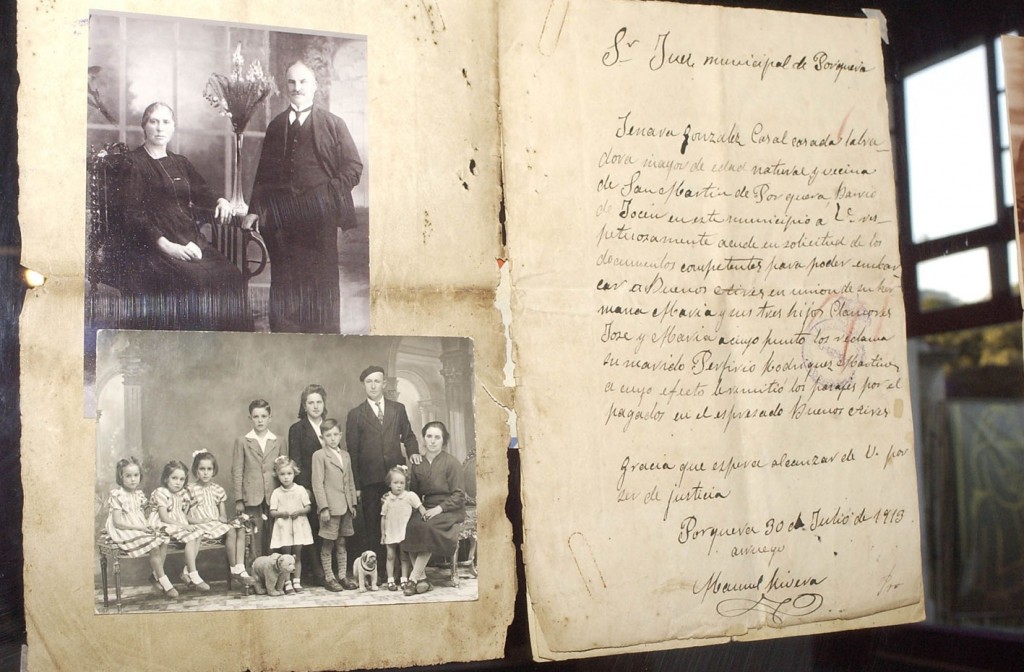 Sr Juez municipal de Porquera
Genara Gonzalez Casal casada labra-
dora mayor de edad natural y vecina
de San Martin de Porquera Barrio
de Tocén en este municipio a V. res-
petuosamente acude en solicitud de los
documentos competentes para poder embar-
car a Buenos Aires en union de su her
mana Maria y sus tres hijos Clamores
Jose y Maria a cuyo punto los reclama
su marido Porfirio Rodriguez Martinez
a cuyo efecto le remitió los pasajes por el
pagados en el espresado Buenos Aires
Gracia que espera alcanzar de V. por
ser de justicia
Porquera 30 de Julio de 1913
a ruego
Manuel Rivera